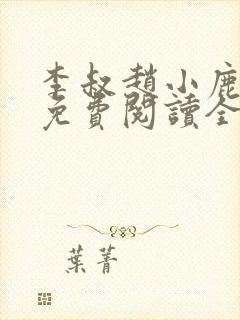 李叔趙小鹿
免費閱讀全
葉菁